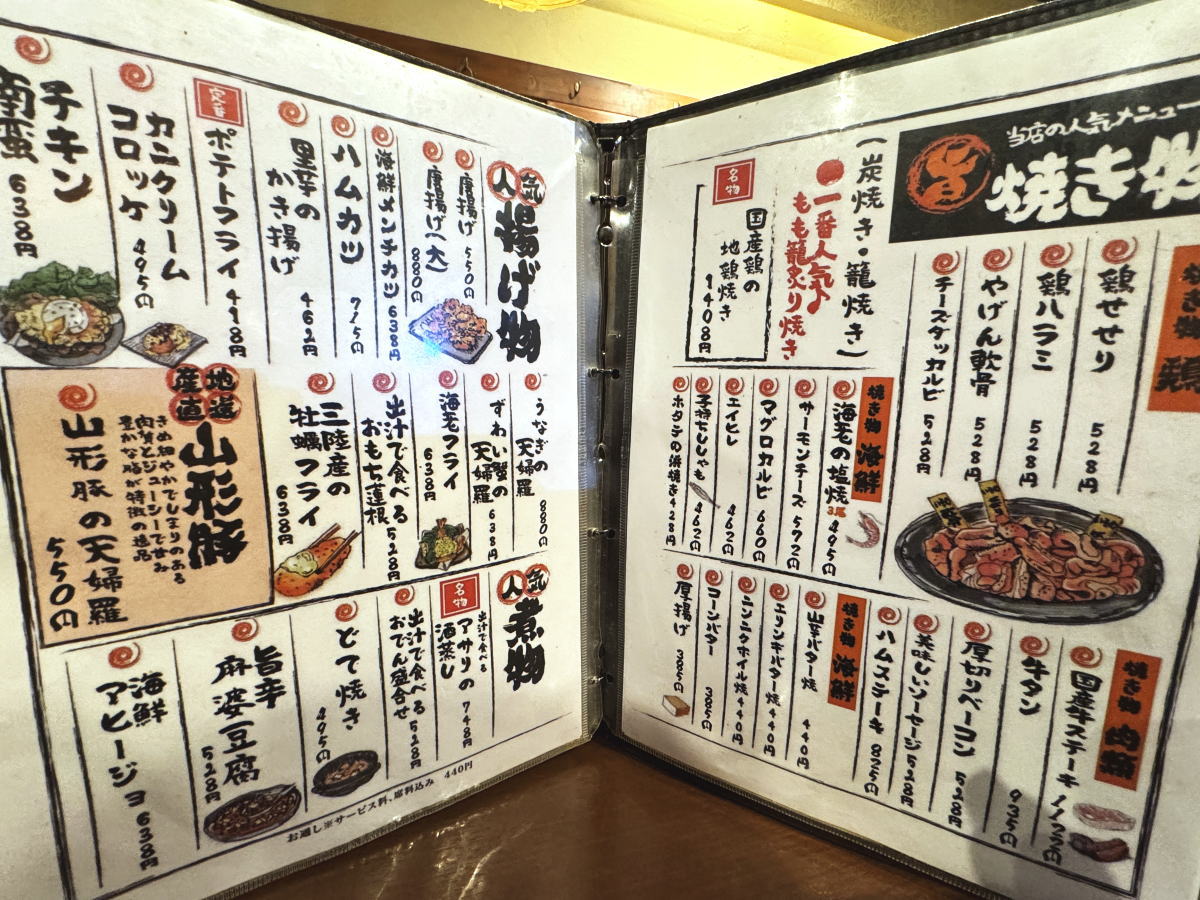 当店の人気メニュー
旨 焼き物
焼き物 鶏
鶏せせり 528円
鶏ハラミ 528円
やげん軟骨 528円
チーズタッカルビ 528円
(炭焼き・籠焼き)
一番人気♪
もも籠炙り焼き
名物
国産鶏の
地鶏焼き
1408円
焼き物 海鮮
海老の塩焼 3尾 495円
サーモンチーズ 572円
マグロカルビ 660円
エイヒレ 462円
子持ちししゃも 462円
ホタテの浜焼き 428円
焼き物 肉系
国産牛ステーキ
牛タン 935円
厚切りベーコン 528円
美味しいソーセージ 528円
ハムステーキ 825円
焼き物 海鮮
山芋バター焼 440円
エリンギバター焼 440円
ニンニクホイル焼 440円
コーンバター 385円
厚揚げ 385円
人気 揚げ物
唐揚げ 550円
唐揚げ(大) 880円
海鮮メンチカツ 638円
ハムカツ 715円
里芋の
かき揚げ 462円
定番
ポテトフライ 418円
カニクリーム
コロッケ 495円
チキン
南蛮 638円
うなぎの
天婦羅 880円
ずわい蟹の
天婦羅 638円
海老フライ 638円
出汁で食べる
おもち蓮根 528円
三陸産の
牡蠣フライ 638円
産地直送
山形豚
きめ細やかでしまりのある
肉質とジューシーで甘み
豊かな脂が特徴の逸品
山形豚の天婦羅
550円
人気 煮物
名物
出汁で食べる
アサリの
酒蒸し 748円
出汁で食べる
おでん盛合せ 528円
どて焼き 495円
旨辛
麻婆豆腐 528円
海鮮
アヒージョ 638円
お通し※サービス料、席料込み 440円